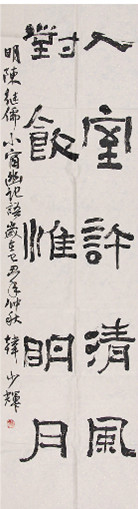 入室許清風
對飲惟明月
明陳继儒小窗幽記語歲在己丑年仲秋韓少輝